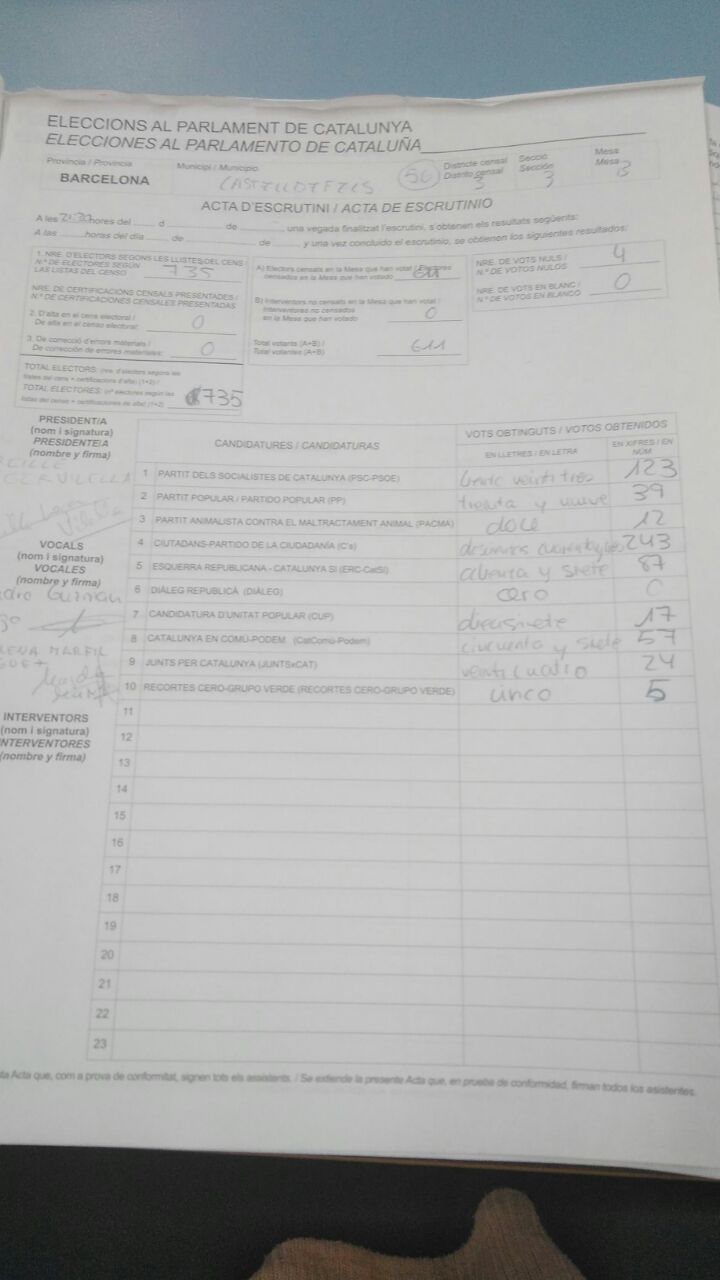 ELECCIONS AL PARLAMENT DE CATALUNYA
ELECCIONES AL PARLAMENTO DE CATALUÑA
Provincia / Provincia Municipi / Municipio Districte censal Secció Mesa
Distrito censal Sección Mesa
BARCELONA CASTELLDEFELS 56 3 3 B
ACTA D'ESCRUTINI / ACTA DE ESCRUTINIO
A les hores del d de , una vegada finalitzat l'escrutini, s'obtenen els resultats següents:
A las horas del día de de y una vez concluido el escrutinio, se obtienen los siguientes resultados:
1. NRE. D'ELECTORS SEGONS LES LLISTES DEL CENS /
N.º DE ELECTORES SEGÚN
LAS LISTAS DEL CENSO 735
NRE. DE CERTIFICACIONS CENSALS PRESENTADES /
N.º DE CERTIFICACIONES CENSALES PRESENTADAS
2. D'alta en el cens electoral /
De alta en el censo electoral: 0
3. De correcció d'errors materials /
De corrección de errores materiales: 0
TOTAL ELECTORS: (nre. d'electors segons les
llistes del cens + certificacions d'alta) (1+2) /
TOTAL ELECTORES: (nº electores según las
listas del censo + certificaciones de alta) (1+2) 735
A) Electors censats en la Mesa que han votat / Electores
censados en la Mesa que han votado 611
B) Interventors no censats en la Mesa que han votat /
Interventores no censados
en la Mesa que han votado 0
Total votants (A+B) /
Total votantes (A+B) 611
NRE. DE VOTS NULS /
N.º DE VOTOS NULOS 4
NRE. DE VOTS EN BLANC /
N.º DE VOTOS EN BLANCO 0
PRESIDENT/A
(nom i signatura)
PRESIDENTE/A
(nombre y firma)
VOCALS
(nom i signatura)
VOCALES
(nombre y firma)
INTERVENTORS
(nom i signatura)
INTERVENTORES
(nombre y firma)
CANDIDATURES / CANDIDATURAS VOTS OBTINGUTS / VOTOS OBTENIDOS
EN LLETRES / EN LETRA EN XIFRES / EN NÚM.
1 PARTIT DELS SOCIALISTES DE CATALUNYA (PSC-PSOE) veinti tres 123
2 PARTIT POPULAR / PARTIDO POPULAR (PP) treinta y nueve 39
3 PARTIT ANIMALISTA CONTRA EL MALTRACTAMENT ANIMAL (PACMA) doce 12
4 CIUTADANS-PARTIDO DE LA CIUDADANÍA (C's) 243
5 ESQUERRA REPUBLICANA - CATALUNYA SÍ (ERC-CatSí) y siete 87
6 DIÀLEG REPUBLICÀ (DIÀLEG) cero 0
7 CANDIDATURA D'UNITAT POPULAR (CUP) diecisiete 17
8 CATALUNYA EN COMÚ-PODEM (CatComú-Podem) cincuenta y siete 57
9 JUNTS PER CATALUNYA (JUNTSxCAT) veinticuatro 24
10 RECORTES CERO-GRUPO VERDE (RECORTES CERO-GRUPO VERDE) cinco 5
11
12
13
14
15
16
17
18
19
20
21
22
23
ta Acta que, com a prova de conformitat, signen tots els assistents. / Se extiende la presente Acta que, en prueba de conformidad, firman todos los asistentes.